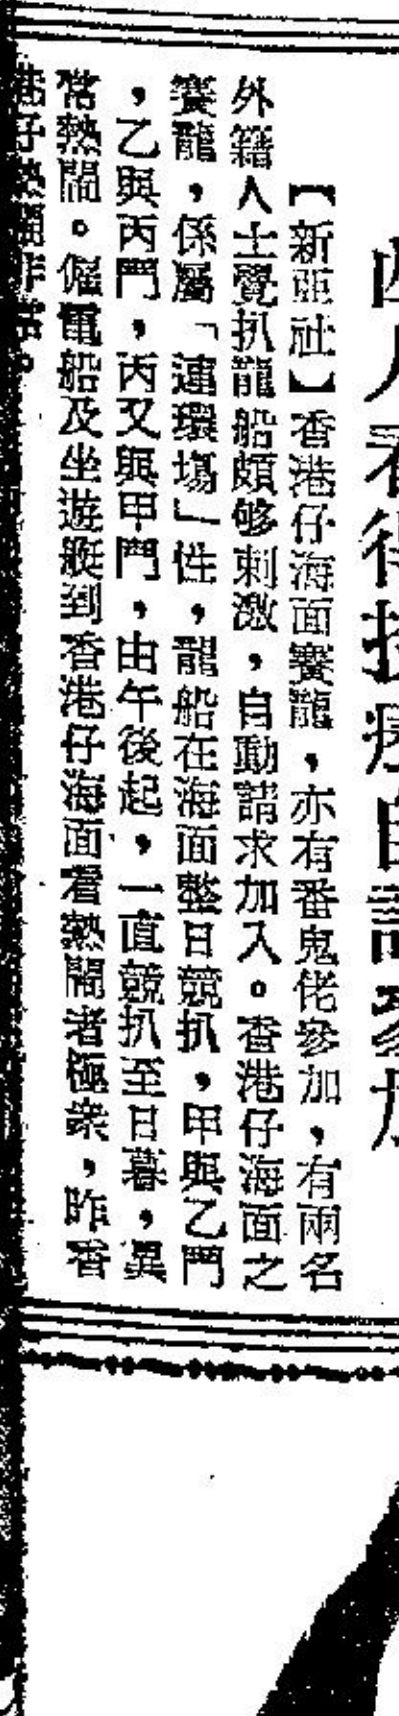 西人看得技癢自請參加
【新亞社】香港仔海面賽龍，亦有番鬼佬參加，有兩名
外籍人士覺扒龍船頗够刺激，自動請求加入。香港仔海面之
賽龍，係屬「連環塲」性，龍船在海面整日競扒，甲與乙鬥
，乙與丙鬥，丙又與甲鬥，由午後起，一直競扒至日暮，異
常熱鬧。僱電船及坐遊艇到香港仔海面看熱鬧者極衆，昨香
港仔熱鬧非常。